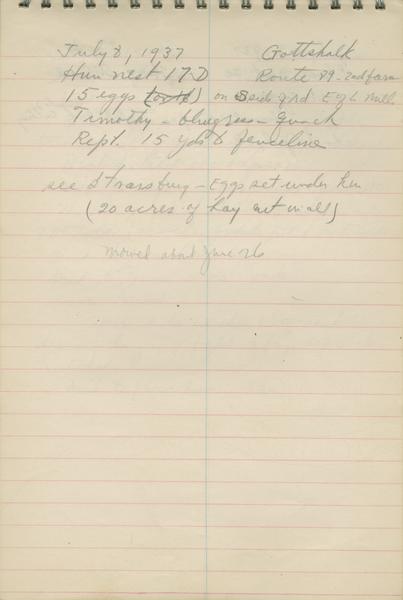 July 8, 1937 Gottshalk
Hun nest 17D Route 89 - 2nd farm
15 eggs on S side of rd E of L Mill.
Timothy - bluegrass - quack
Rept. 15 yds to fenceline
see Strassburg - Eggs set under hen
(20 acres of hay cut in all)
Mowed about June 26